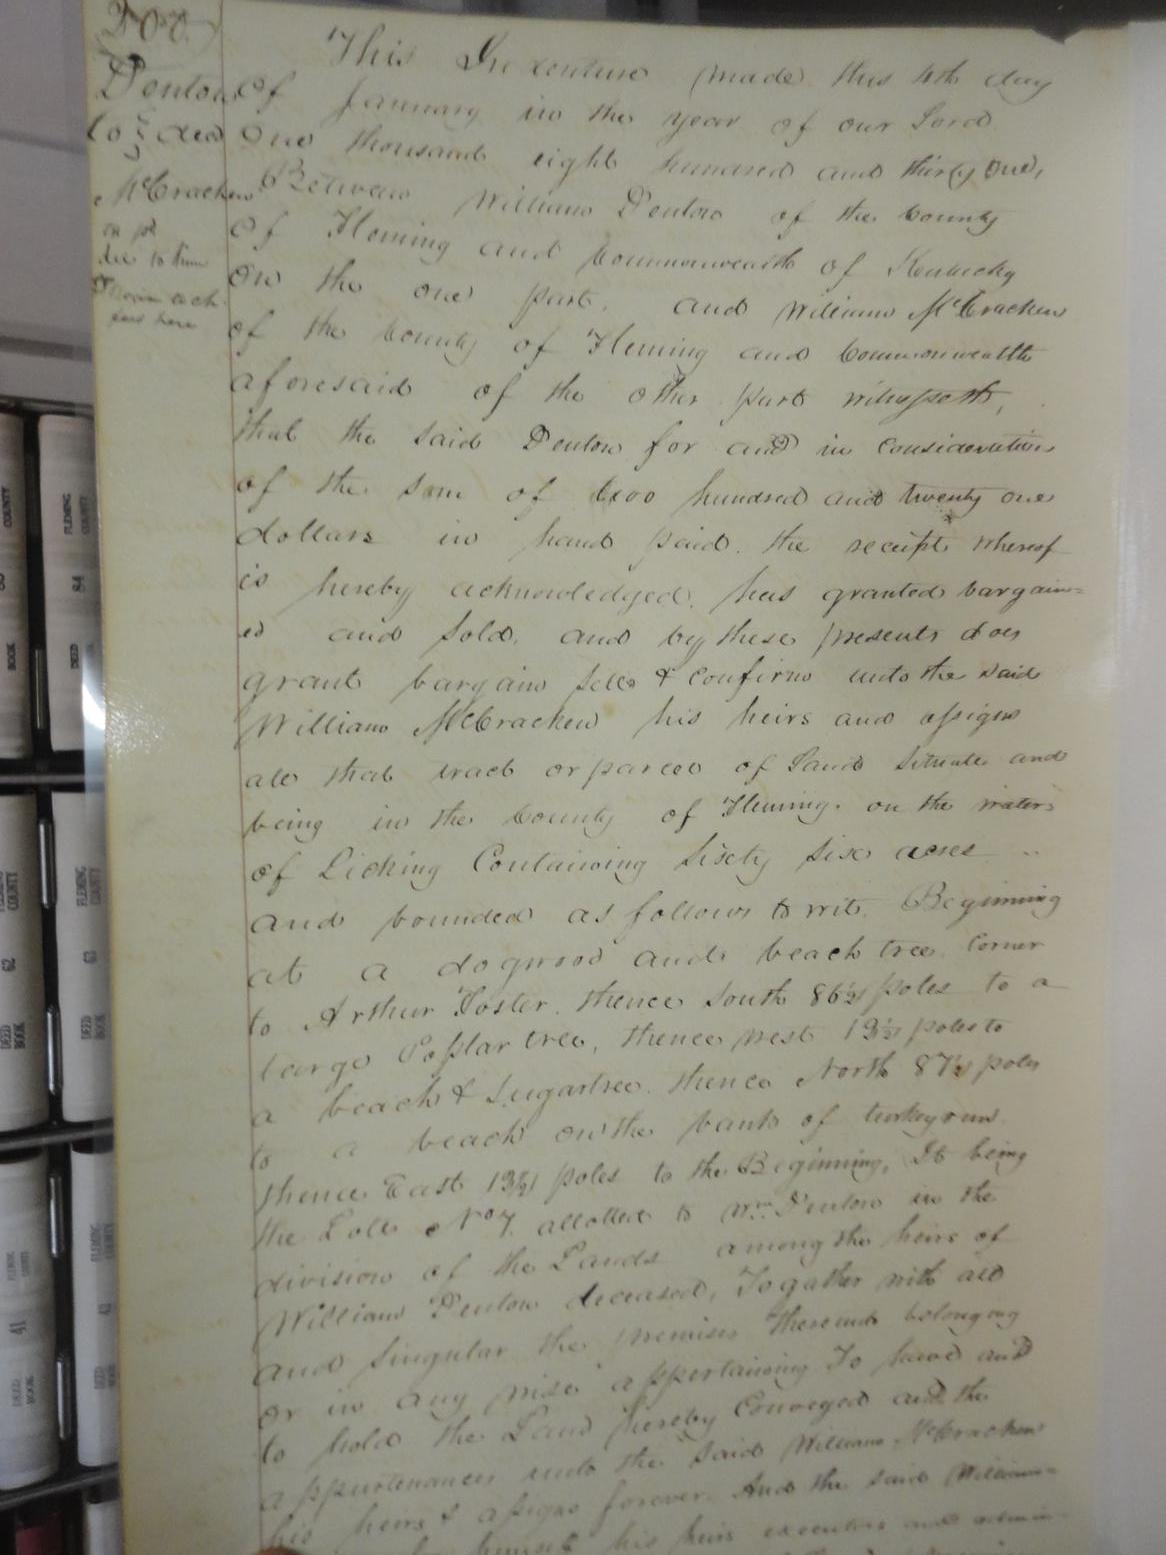 300
Denton
to } deed
McCracken
This Indenture made this 4th day
of January in the year of our Lord
One thousand eight hundred and thirty One,
Between William Denton of the County
of Fleming and Commonwealth of Kentucky
On the one part. and William McCracken
of the County of Fleming and Commonwealth
aforesaid of the other part witnesseth,
that the said Denton for and in consideration
of the sum of two hundred and twenty one
dollars in hand paid. the receipt whereof
is hereby acknowledged. has granted bargain=
ed and sold, and by these presents does
grant bargain sell & confirm unto the said
William McCracken his heirs and assigns
all that tract or parcel of Land situate and
being in the County of Fleming. on the waters
of Licking Containing Sixty Six acres
and bounded as follows to wit. Beginning
at a dogwood and beach tree Corner
to Arthur Foster. thence South 86½ poles to a
large Poplar tree, thence west poles to
a beach & Sugartree. thence North 87½ poles
to a beach on the bank of turkey run
thence East poles to the Beginning, It being
the Lott No 7. allotted to Wm Denton in the
division of the Lands among the heirs of
William Denton deceased, Togather with all
and Singular the premises thereunto belonging
or in any wise appertaining To have and
to hold the Land hereby Conveyed and the
appurtenances unto the said William McCracken
his heirs & assigns forever. And the said William
himself his heirs executors and
FLEMING
COUNTY
84
DEED
BOOK
FLEMING
COUNTY
62
DEED
BOOK
FLEMING
COUNTY
63
DEED
BOOK
FLEMING
COUNTY
41
DEED
BOOK
FLEMING
COUNTY
42
DEED
BOOK